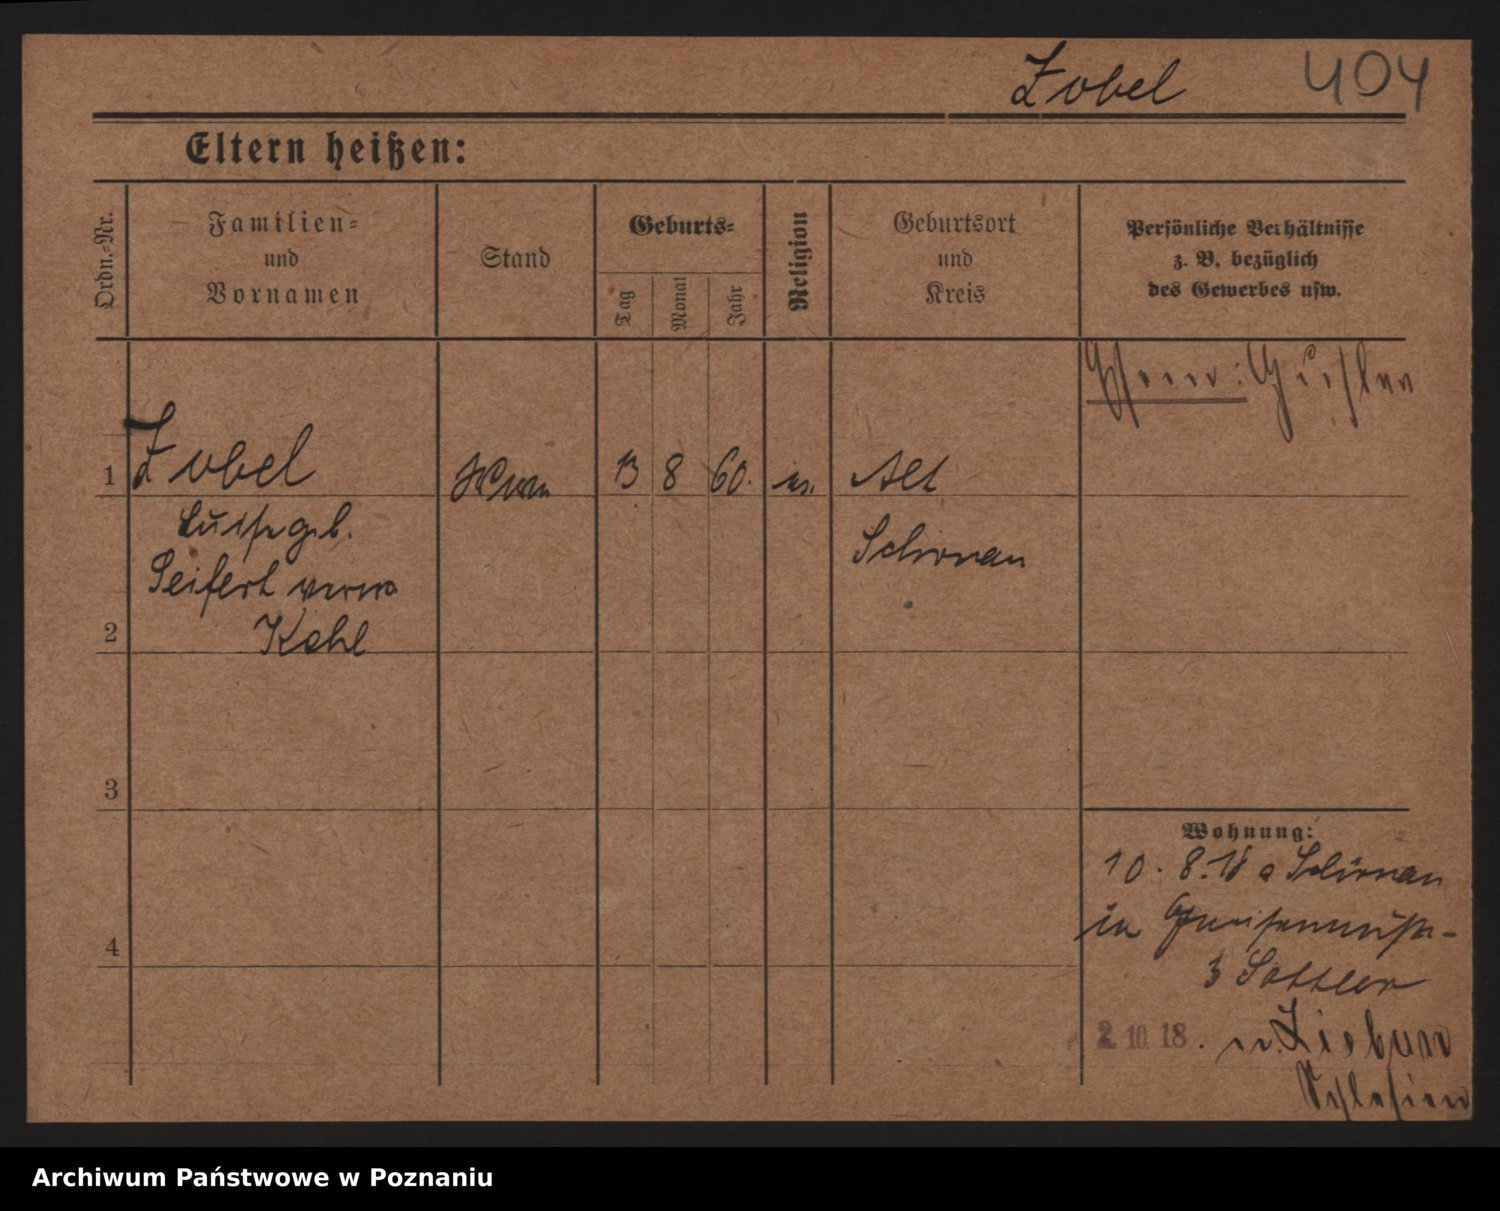 Zobel 404
Eltern heißen:
Ordn.-Nr.
Familien-
und
Vornamen
Stand
Geburts-
Tag
Monat
Jahr
Religion
Geburtsort
und
Kreis
Persönliche Verhältnisse
z. B. bezüglich
des Gewerbes usw.
1 Zobel 13 8 60. Alt
Luise geb.
Schirnau
Seifert verw
2 Kohl
3
4
Wohnung:
10. 8. 18 a Schirnau
in
3 Sattler
2 10 18. n. Liebau
Schlesien
Archiwum Państwowe w Poznaniu